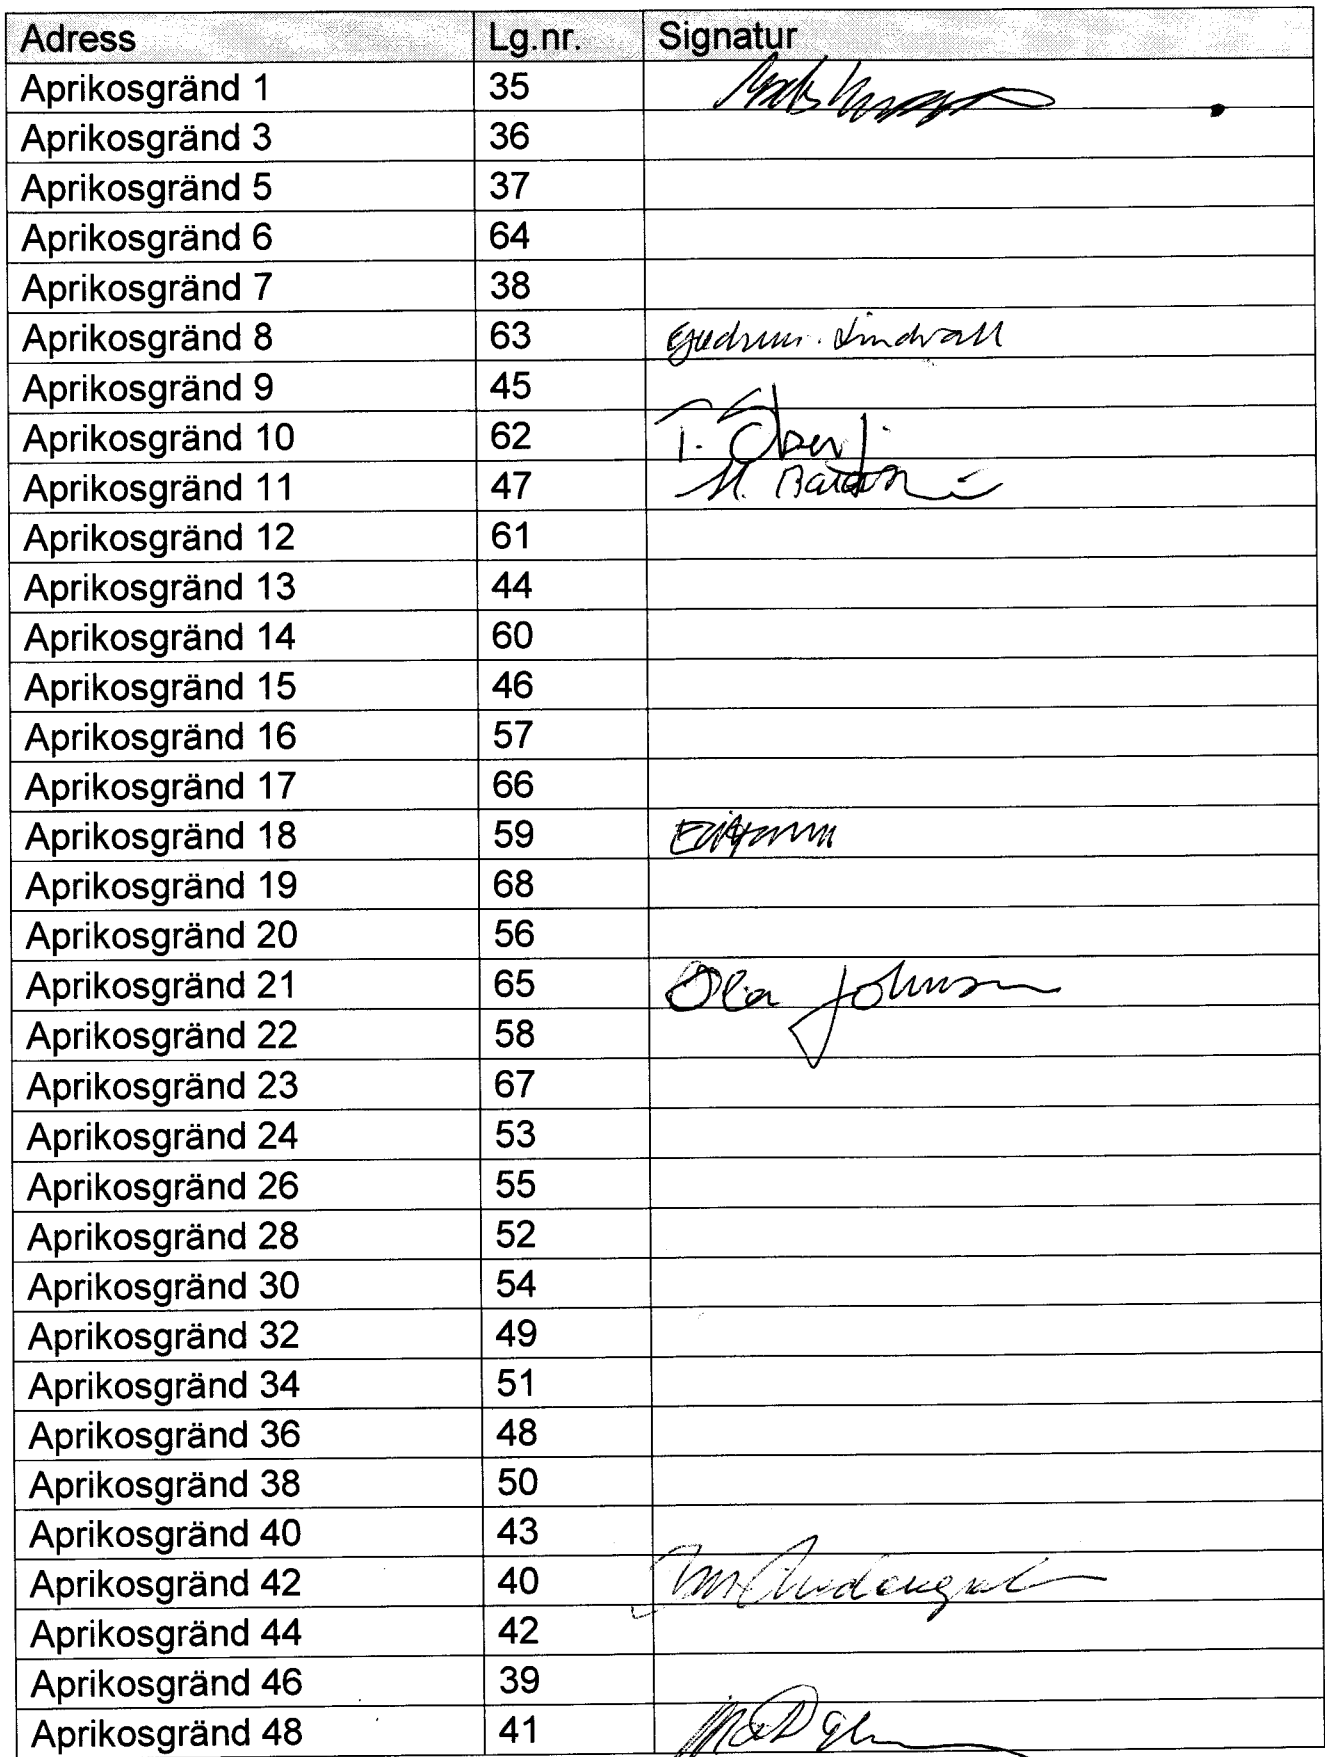 Adress Lg.nr. Signatur
Aprikosgränd 1 35
Aprikosgränd 3 36
Aprikosgränd 5 37
Aprikosgränd 6 64
Aprikosgränd 7 38
Aprikosgränd 8 63 Gudrun Lindvall
Aprikosgränd 9 45
Aprikosgränd 10 62 T.
Aprikosgränd 11 47 M.
Aprikosgränd 12 61
Aprikosgränd 13 44
Aprikosgränd 14 60
Aprikosgränd 15 46
Aprikosgränd 16 57
Aprikosgränd 17 66
Aprikosgränd 18 59
Aprikosgränd 19 68
Aprikosgränd 20 56
Aprikosgränd 21 65 Ola Johnson
Aprikosgränd 22 58
Aprikosgränd 23 67
Aprikosgränd 24 53
Aprikosgränd 26 55
Aprikosgränd 28 52
Aprikosgränd 30 54
Aprikosgränd 32 49
Aprikosgränd 34 51
Aprikosgränd 36 48
Aprikosgränd 38 50
Aprikosgränd 40 43
Aprikosgränd 42 40
Aprikosgränd 44 42
Aprikosgränd 46 39
Aprikosgränd 48 41